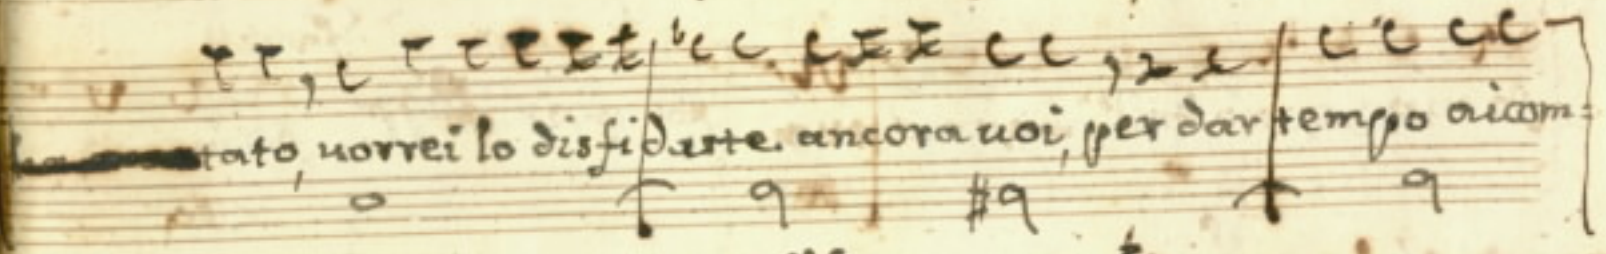 tato, uorrei lo disfidaste ancora uoi, per dar tempo ai com=